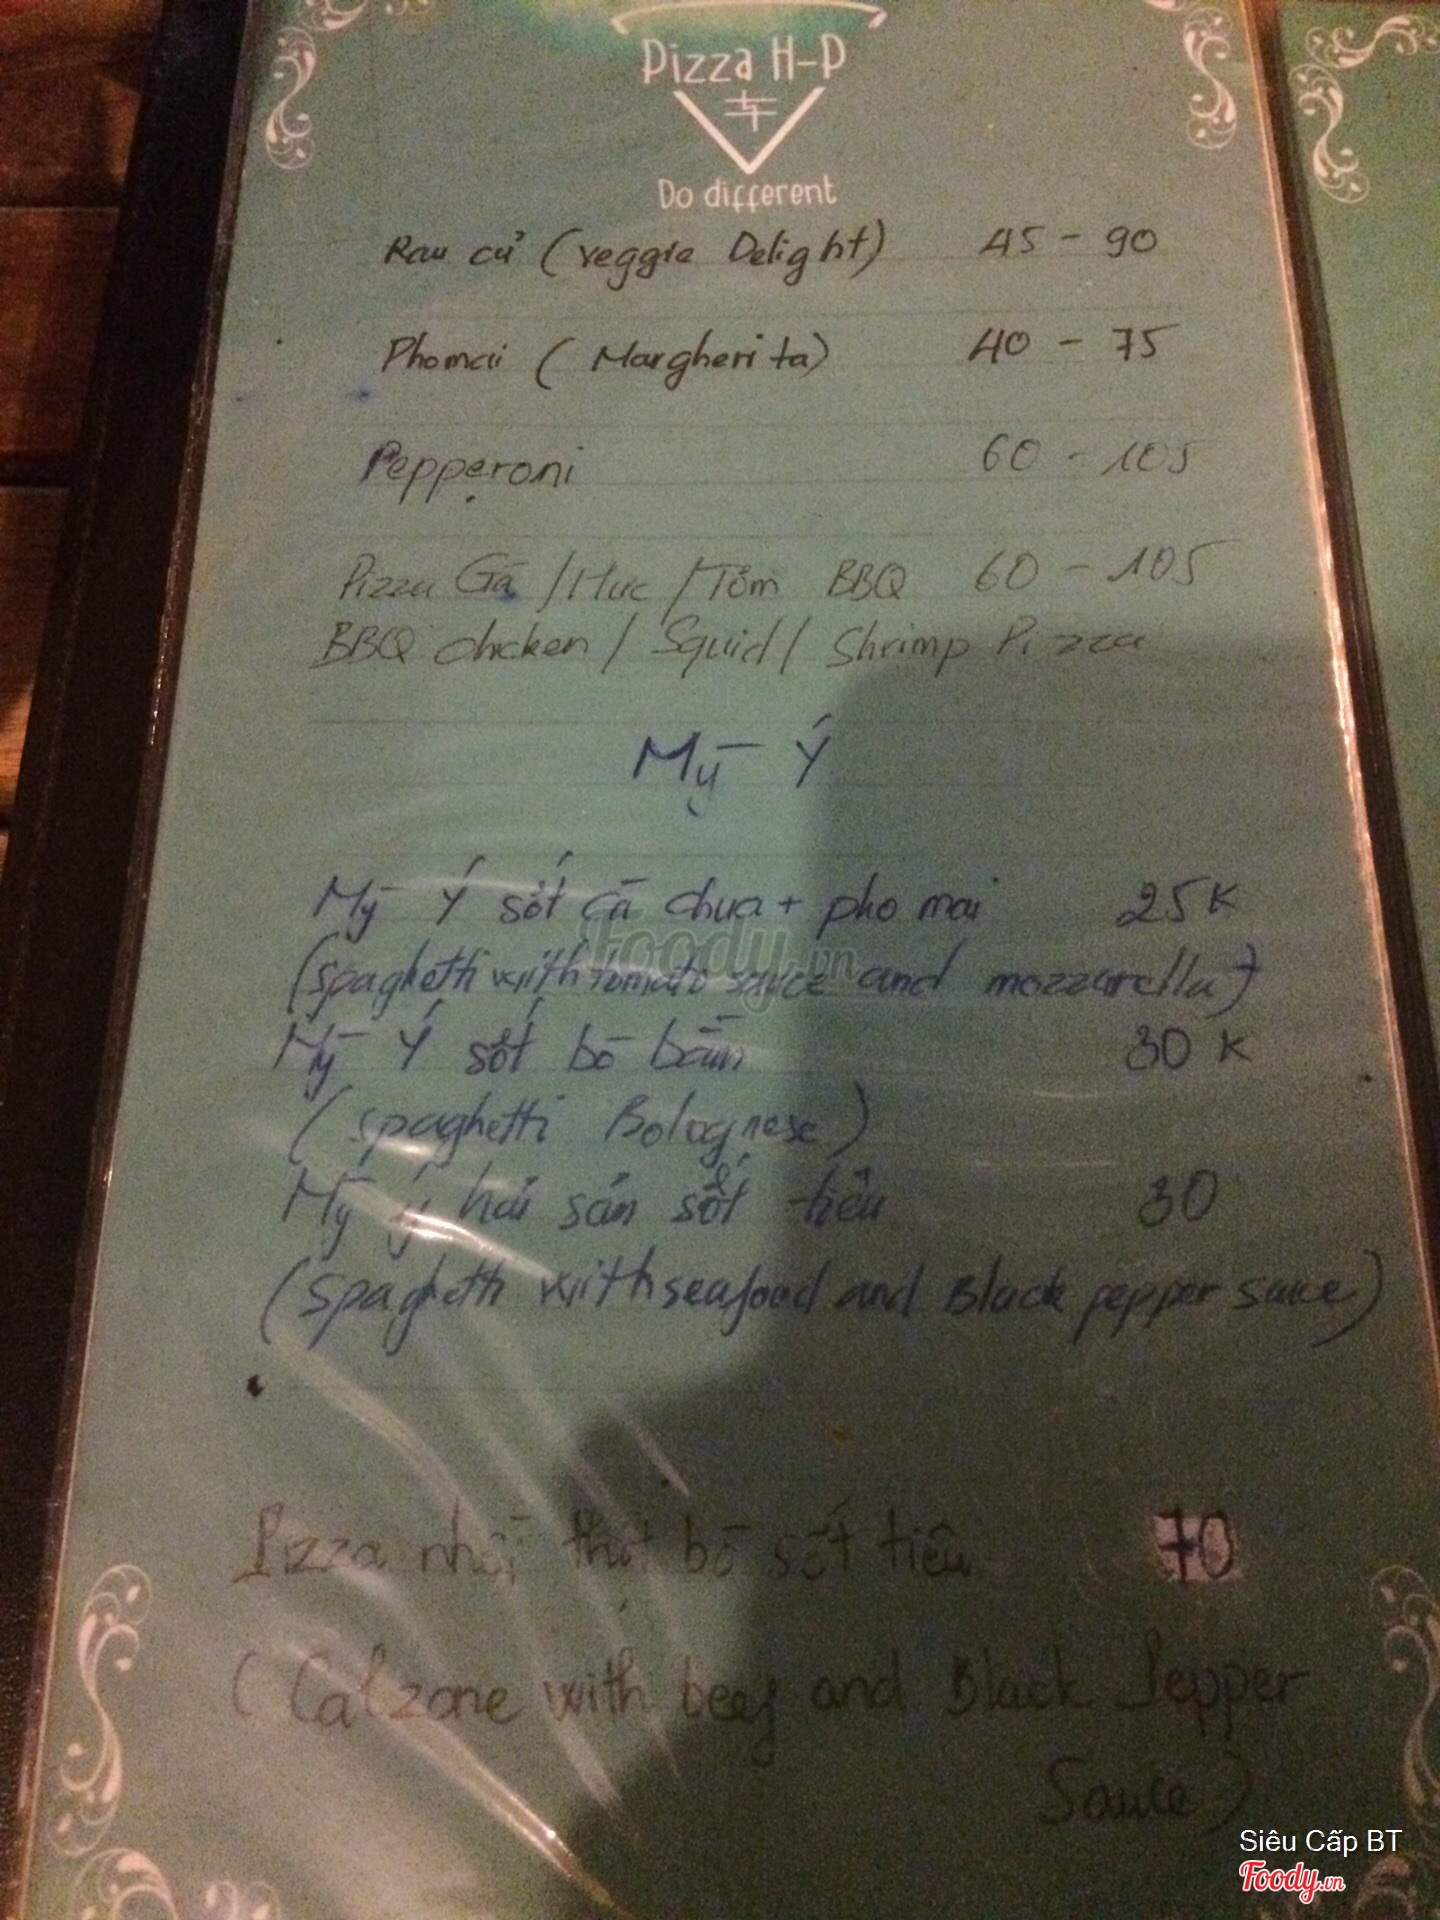 Pizza H-P
Do different
Rau củ (veggie Delight) 45 - 90
Phomai (Margherita) 40 - 75
Pepperoni 60 - 105
Pizza Gà / Mực / Tôm BBQ 60 - 105
BBQ chicken / Squid / Shrimp Pizza
Mỳ Ý
Mỳ Ý sốt cà chua + pho mai 25K
(spaghetti with tomato sauce and mozzarella)
Mỳ Ý sốt bò bằm 30K
(spaghetti Bolognese)
Mỳ ý hải sản sốt tiêu 30
(Spaghetti with seafood and Black pepper sauce)
Pizza nhồi thịt bò sốt tiêu 70
(Calzone with beef and Black Pepper
Sauce)
Foody.vn
Siêu Cấp BT
Foody.vn